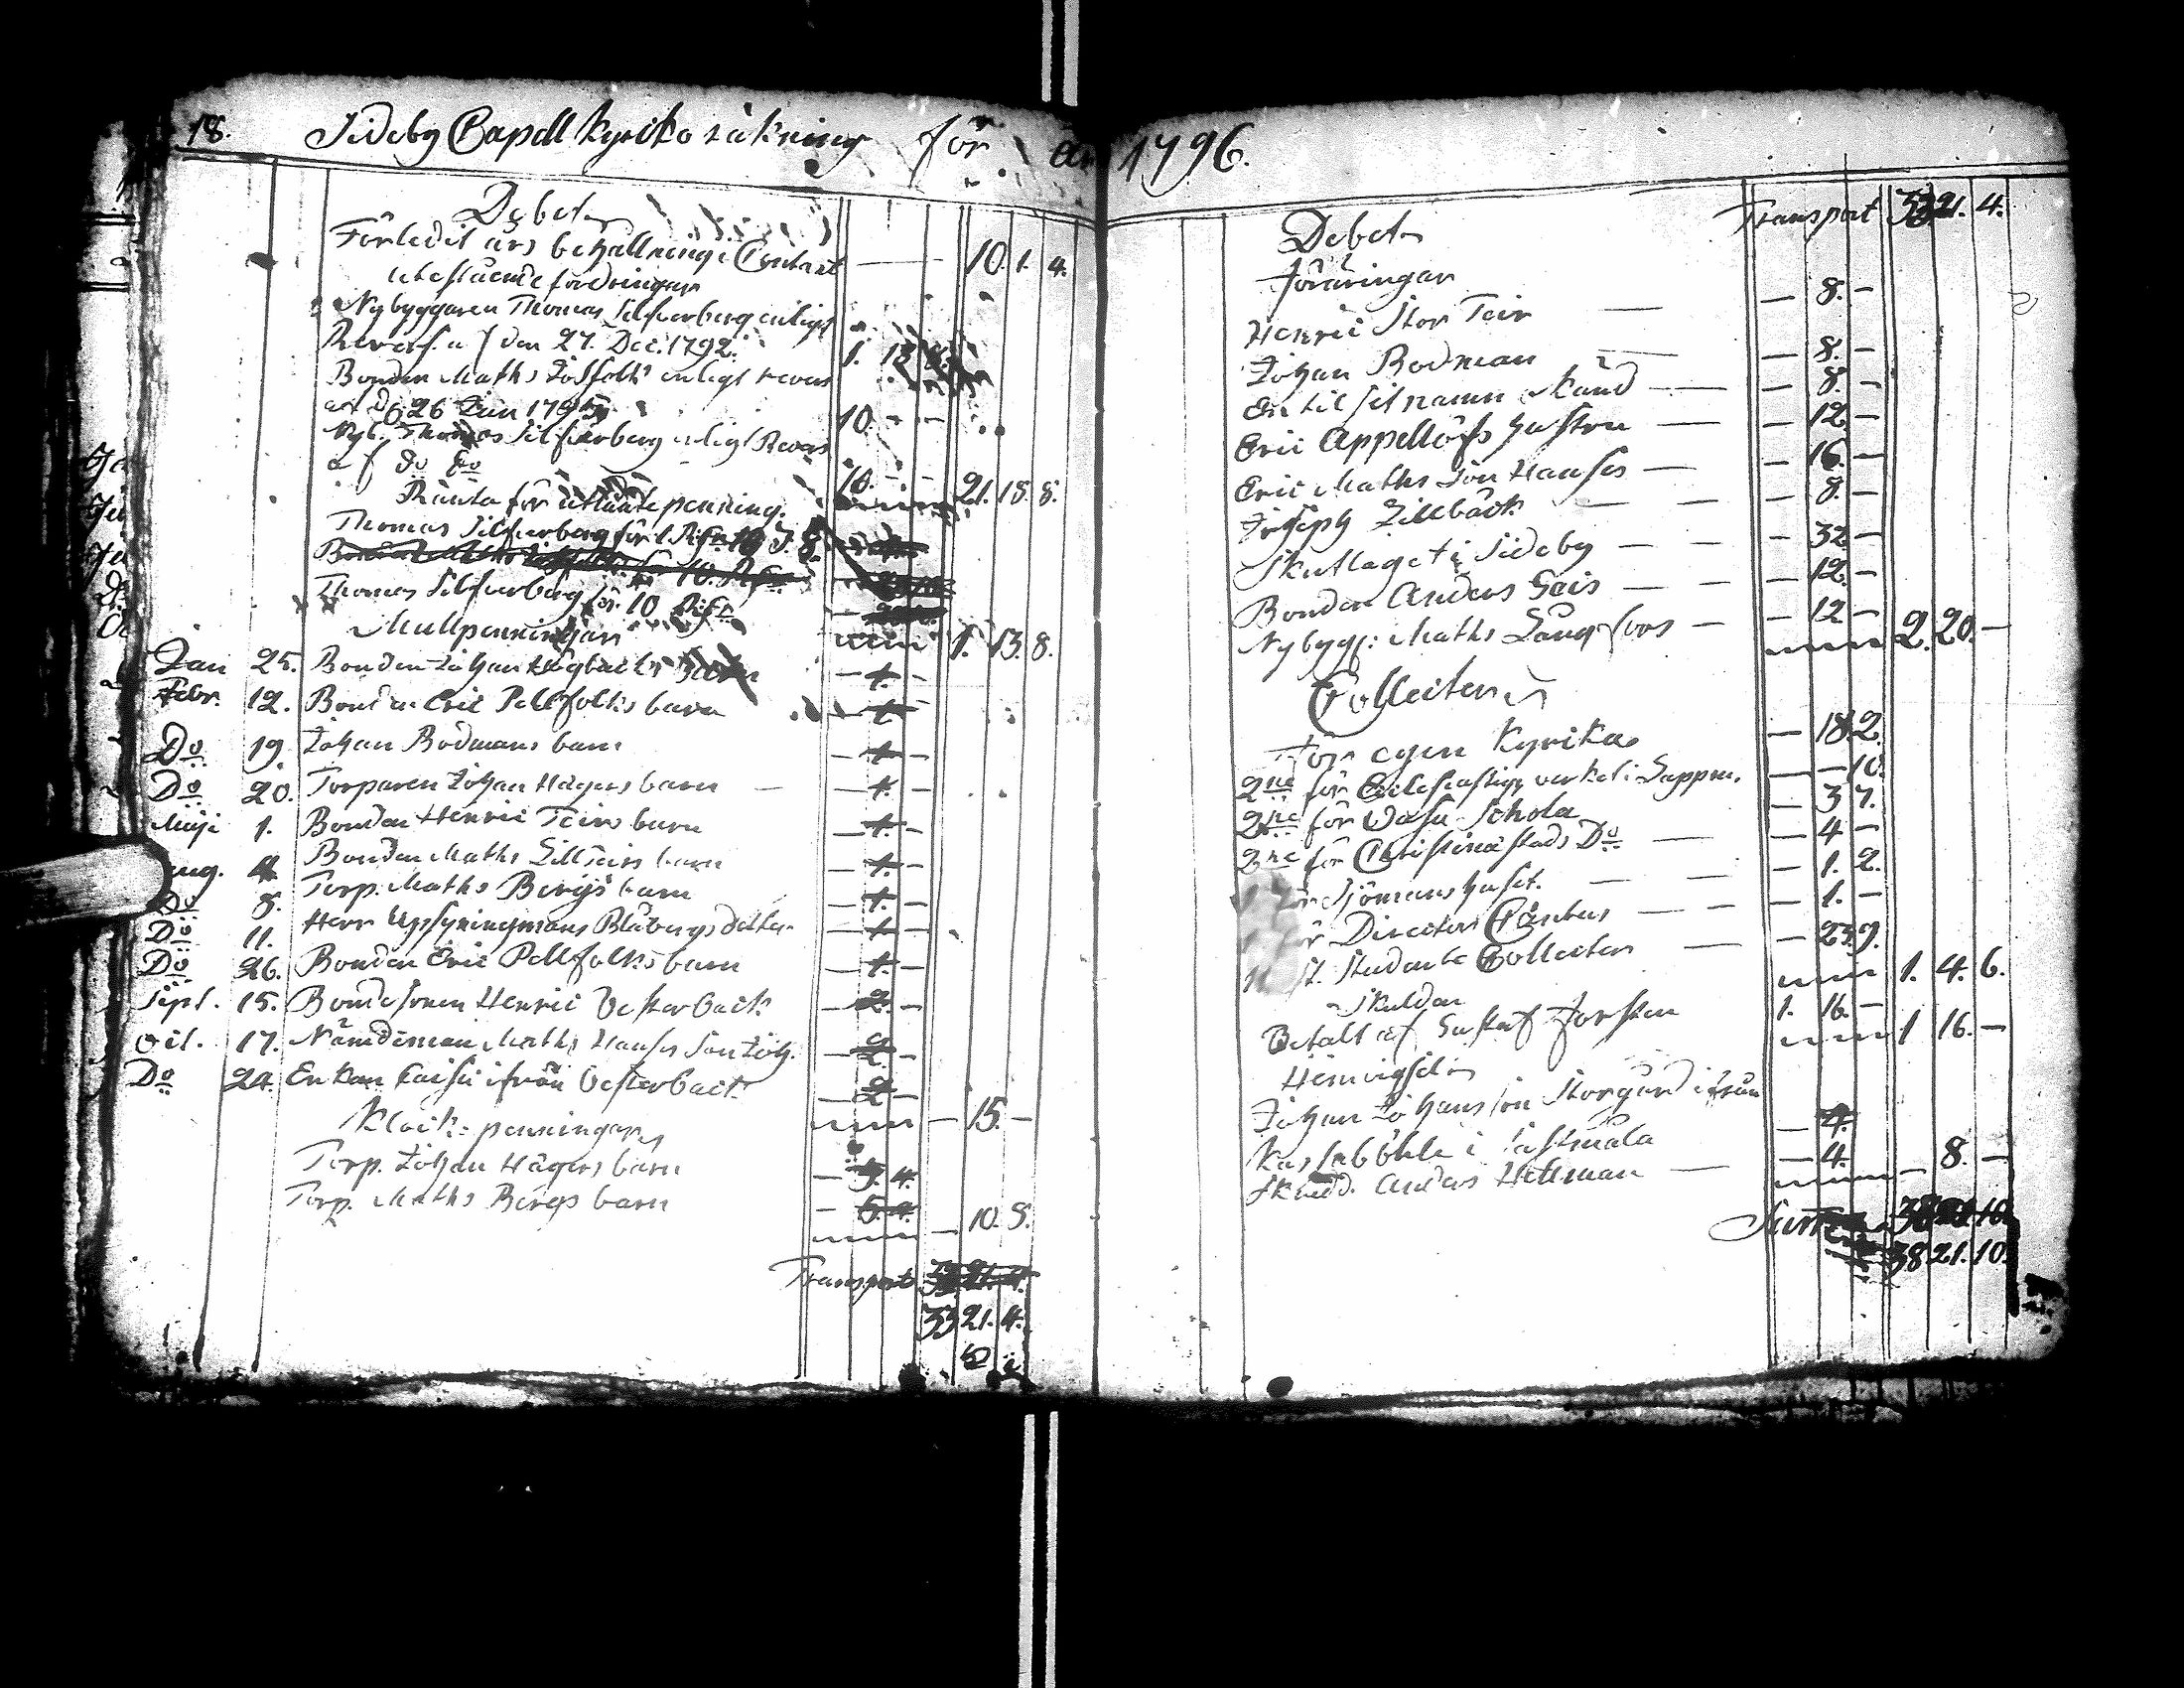 18. Sideby Capell kyrko räkning för år 1796.
Debet
Förledit års behållning i Contant — 10. 1. 4.
utestående fordringar
Nybyggaren Thomas Silfverberg enligt
Revers af den 27. Dec. 1792. 1. 18. 8.
Bonden Maths Josfolks enligt revers
af d. 26 Jun 1795 10. - -
Nyb. Thomas Silfverberg enligt Revers
af do do 10. - - 21. 18. 8.
Ränta för utlånte penning.
Thomas Silfverberg för 1 R
Thomas Silfverberg för 10 R
Mullpenningar 1. 13. 8.
Jan 25. Bonden Johan Högbacks
Febr. 12. Bonden Eric Pellfolks barn
Do 19. Johan Bodmans barn
Do 20. Torparen Johan Hägers barn
Maji 1. Bonden Henric Teirs barn
Aug. 4. Bonden Maths Lillteirs barn
Do 8. Torp. Maths Bergs barn
Do 11. Herr Uppsyningsmans Blåbergs dotter
Do 26. Bonden Eric Pellfolks barn
Sept. 15. Bondesonen Henric Vesterback 2.
Oct. 17. Nämdeman Maths Hansson 2
Do 24. Enkan Caisa ifrån Vesterback 2
— 15. —
Klock-penningar
Torp. Johan Hägers barn — 5. 4.
Torp. Maths Bergs barn — 5. 4. — 10. 8.
Transport
33 21. 4.
Debet Transport 33 21. 4.
Föräringar
Henric Stor Teir — 8. —
Johan Bodman — 8. —
En til sit namn okänd — 8. —
Eric Appellöfs hustru — 12. —
Eric Mathsson Hanses — 16. —
Joseph Lillbäck — 8. —
Skutlaget i Sideby — 32. —
Bonden Anders Geis — 12. —
Nybygg: Maths Långfors — 12 — 2. 20. —
Collecter
För egen kyrika — 18. 2.
2ne för Ecclesiastiqve verket i Lappm. — — 10.
2ne för Vasa Schola — 3 7.
2ne för Christinæstads Do — 4 —
för Sjömanshuset. — 1. 2.
för Director Cantus — 1. —
st. Studente Collecter — 23. 9. 1. 4. 6.
Skulder
Betalt af Gustaf Forsten 1. 16. — 1 16. —
Hemvigsel
Johan Johansson Storgård ifrån
i Lastmala — 4.
Skrädd. Anders Hellman — 4. — 8. —
Summa
38 21. 10.